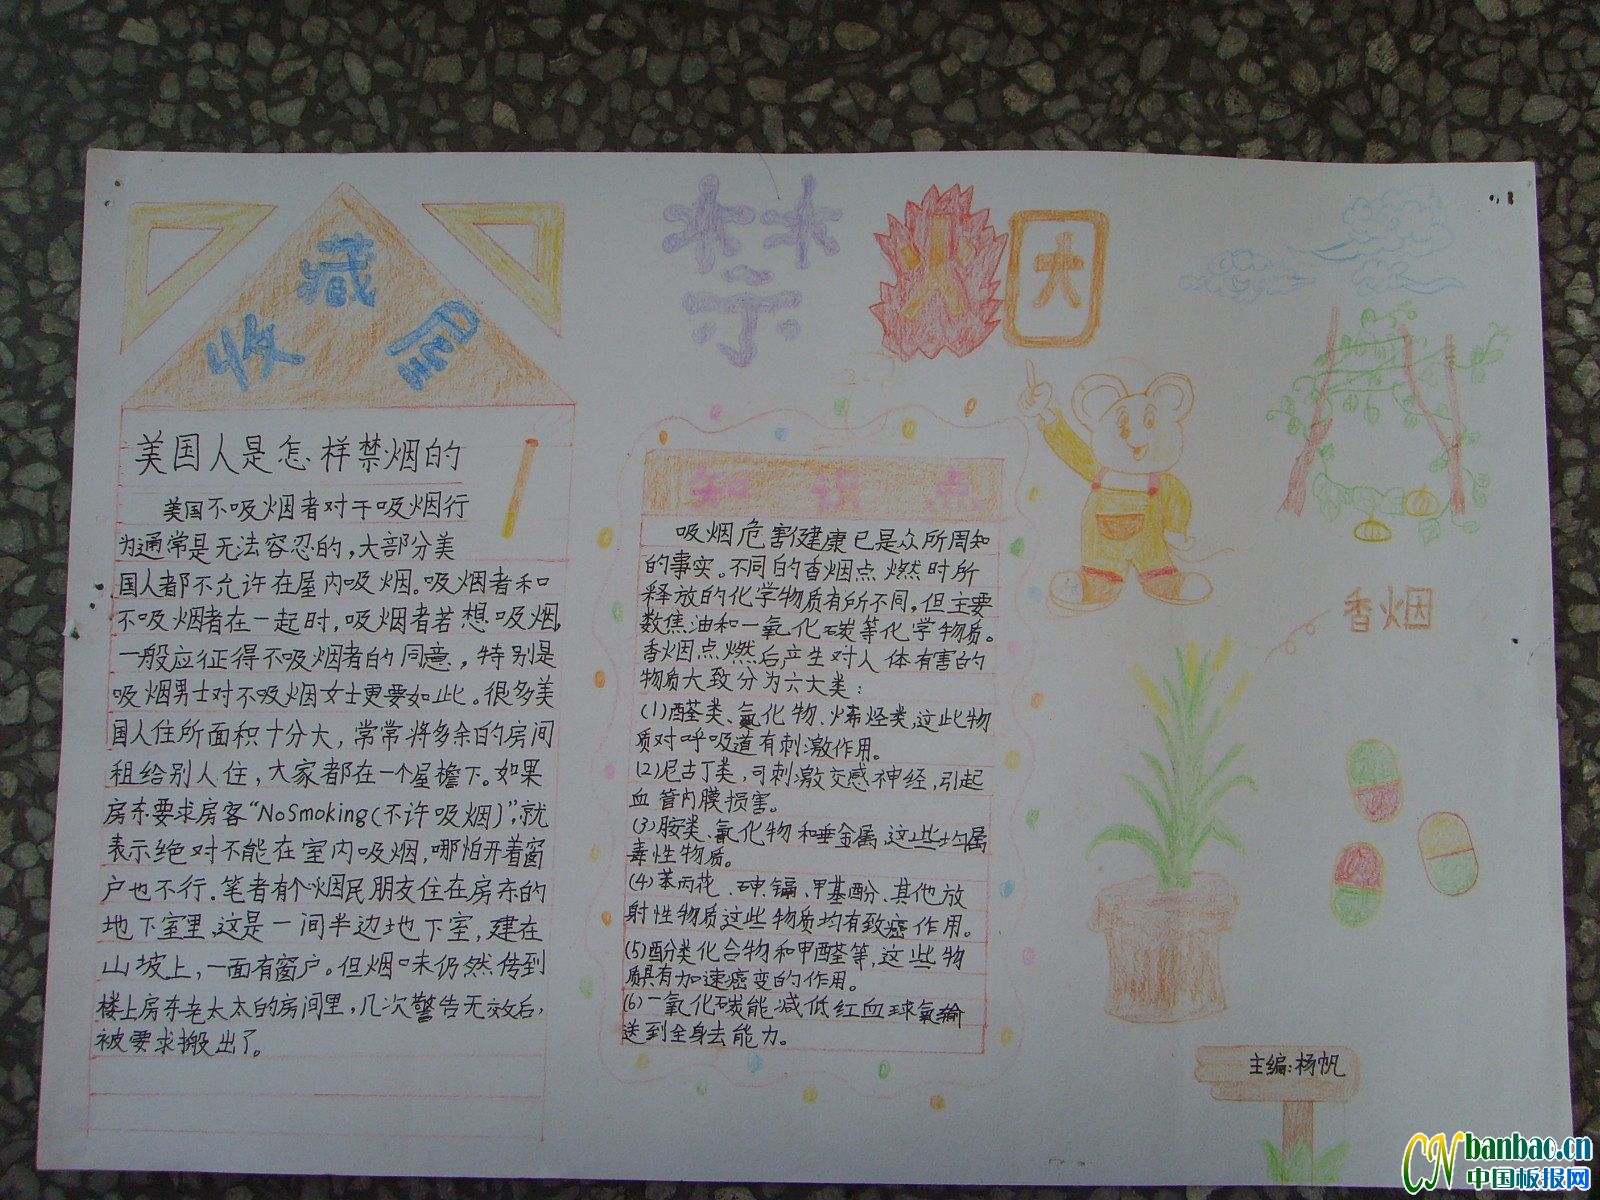 收藏屋
禁烟
美国人是怎样禁烟的
美国不吸烟者对于吸烟行
为通常是无法容忍的，大部分美
国人都不允许在屋内吸烟。吸烟者和
不吸烟者在一起时，吸烟者若想吸烟，
一般应征得不吸烟者的同意，特别是
吸烟男士对不吸烟女士更要如此。很多美
国人住所面积十分大，常常将多余的房间
租给别人住，大家都在一个屋檐下。如果
房东要求房客“No Smoking(不许吸烟)”，就
表示绝对不能在室内吸烟，哪怕开着窗
户也不行。笔者有个烟民朋友住在房东的
地下室里，这是一间半边地下室，建在
山坡上，一面有窗户。但烟味仍然传到
楼上房东老太太的房间里，几次警告无效后，
被要求搬出了。
知识点
吸烟危害健康已是众所周知
的事实。不同的香烟点燃时所
释放的化学物质有所不同，但主要
数焦油和一氧化碳等化学物质。
香烟点燃后产生对人体有害的
物质大致分为六大类：
(1)醛类、氮化物、烯烃类，这些物
质对呼吸道有刺激作用。
(2)尼古丁类，可刺激交感神经，引起
血管内膜损害。
(3)胺类、氰化物和重金属，这些均属
毒性物质。
(4)苯丙芘、砷、镉、甲基酚、其他放
射性物质这些物质均有致癌作用。
(5)酚类化合物和甲醛等，这些物
质具有加速癌变的作用。
(6)一氧化碳能减低红血球氧输
送到全身去能力。
香烟
主编：杨帆
CN banbao.cn
中国板报网